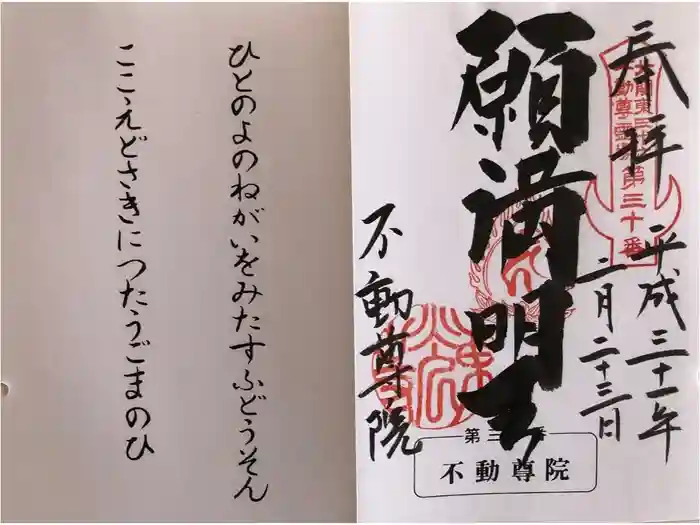 奉拝
平成三十一年
二月二十三日
願満明王
不動尊院
第三十番
不動尊院
ひとのよのねがいをみたすふどうそん
ここえどさきにつたうごまのひ